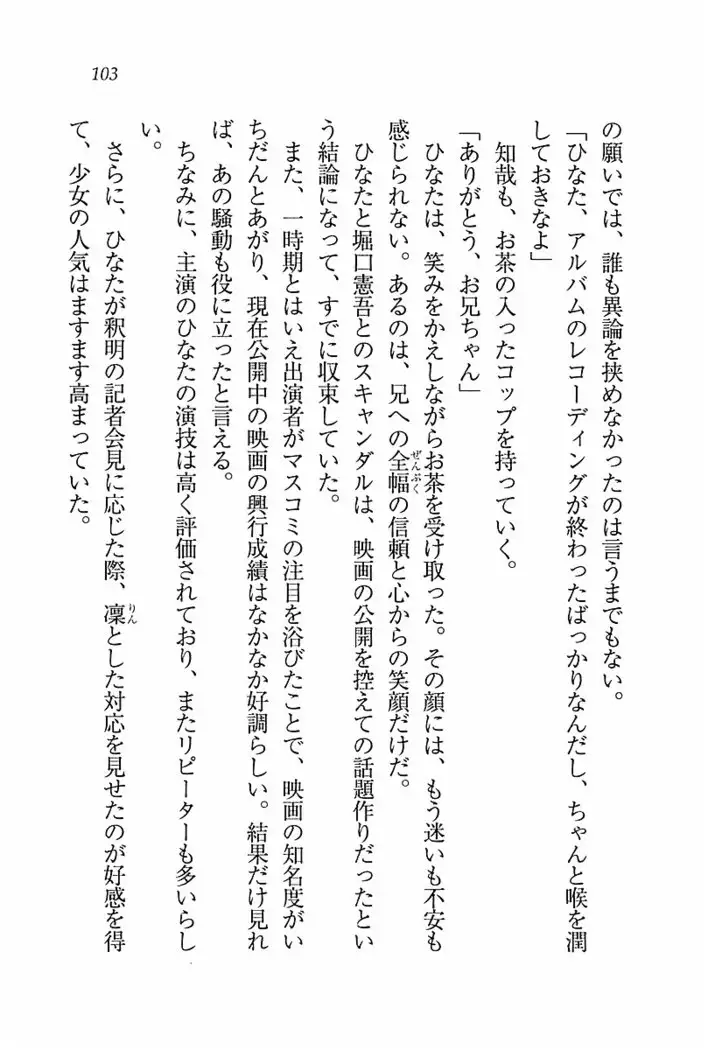 103
の願いでは、誰も異論を挟めなかったのは言うまでもない。
「ひなた、アルバムのレコーディングが終わったばっかりなんだし、ちゃんと喉を潤
しておきなよ」
知哉も、お茶の入ったコップを持っていく。
「ありがとう、お兄ちゃん」
ひなたは、笑みをかえしながらお茶を受け取った。その顔には、もう迷いも不安も
感じられない。あるのは、兄への全幅の信頼と心からの笑顔だけだ。
ぜんぷく
ひなたと堀口憲吾とのスキャンダルは、映画の公開を控えての話題作りだったとい
う結論になって、すでに収束していた。
また、一時期とはいえ出演者がマスコミの注目を浴びたことで、映画の知名度がい
ちだんとあがり、現在公開中の映画の興行成績はなかなか好調らしい。結果だけ見れ
ば、あの騒動も役に立ったと言える。
ちなみに、主演のひなたの演技は高く評価されており、またリピーターも多いらし
い。
さらに、ひなたが釈明の記者会見に応じた際、凜とした対応を見せたのが好感を得
りん
て、少女の人気はますます高まっていた。